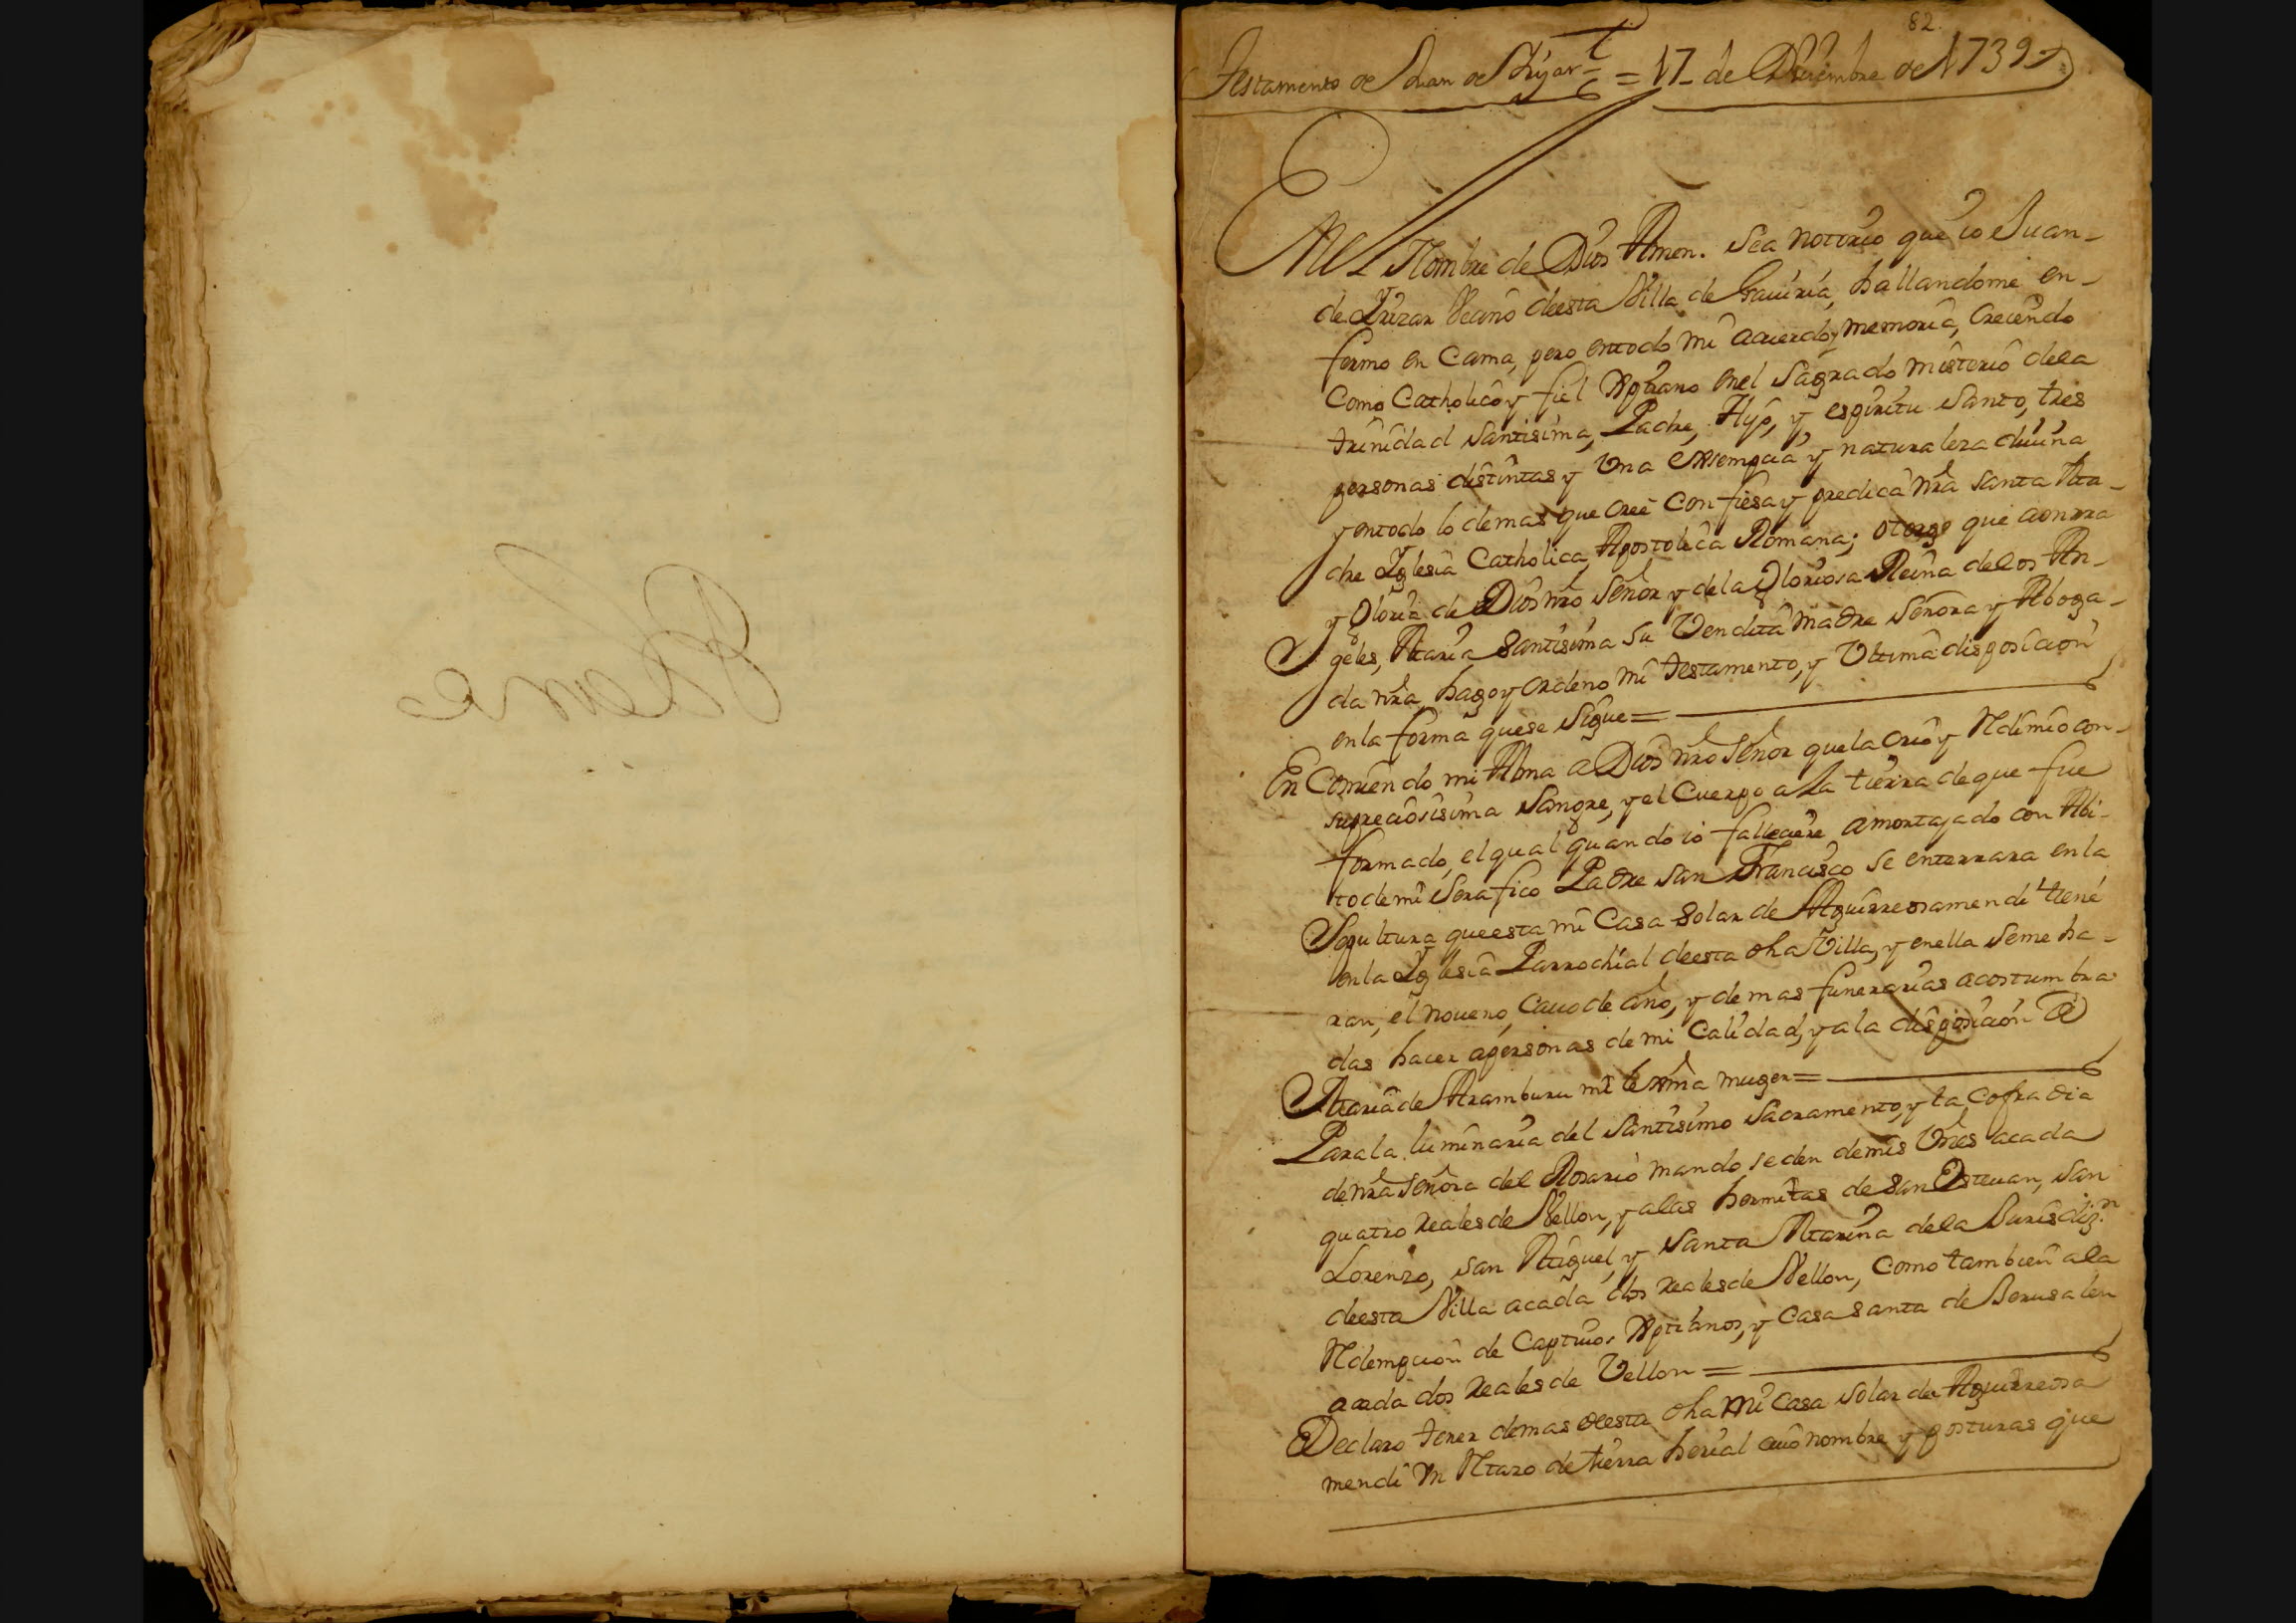 82.
Testamento de Juan de Yrizar = 17 de Diziembre de 1739
En el Nombre de Dios Amen. Sea notorio que io Juan-
de Yrizar Vecino deesta Villa de Gauiria, hallandome en-
fermo en Cama, pero entodo mi acuerdo y memoria, Creiendo
Como Catholico y fiel Xptiano enel Sagrado misterio dela
trinidad Santisima, Padre, Hijo, y espiritu Santo, tres
personas distintas y Una Essempcia y naturaleza diuina
y entodo lo demas que cree confiesa y predica nra Santa Ma-
dre Yglesia Catholica Apostolica Romana; otorgo que aonrra
y Gloria de Dios nro Señor y dela Gloriosa Reina delos An-
geles, Maria Santisima su Vendita Madre Señora y Aboga-
da nra, hago y ordeno mi testamento, y Ultima disposicion
enla forma quese sigue =
En Comiendo mi Alma a Dios nro Señor quela crio y Redimio con-
supreciosisima Sangre, y el Cuerpo a la tierra deque fue
formado, el qual quando io falleciere amortajado con Abi-
to demi Serafico Padre San Francisco se enterrara enla
Sepultura queesta mi Casa Solar de Aguirreosamendi tiene
enla Yglesia Parrochial deesta dha Villa, y enella Seme ha-
ran, el noueno, Cauo de año, y demas funerarias acostumbra
das hacer apersonas de mi Calidad, y a la disposicion de
Maria de Aramburu mi lexma muger =
Parala luminaria del Santisimo Sacramento, y la Cofradia
denra Señora del Rosario mando se den demis Vnes acada
quatro reales de Vellon, y alas hermitas de San Esteuan, San
Lorenzo, San Miguel, y Santa Marina dela Jurisdizn
deesta Villa acada dos reales de Vellon, Como tambien ala
Redempcion de Captiuos Xptianos, y Casa santa de Jerusalen
acada dos reales de Vellon =
Declaro tener demas deesta dha mi Casa Solar de Aguirreosa
mendi Vn Mtazo de tierra herial cuio nombre y posturas que